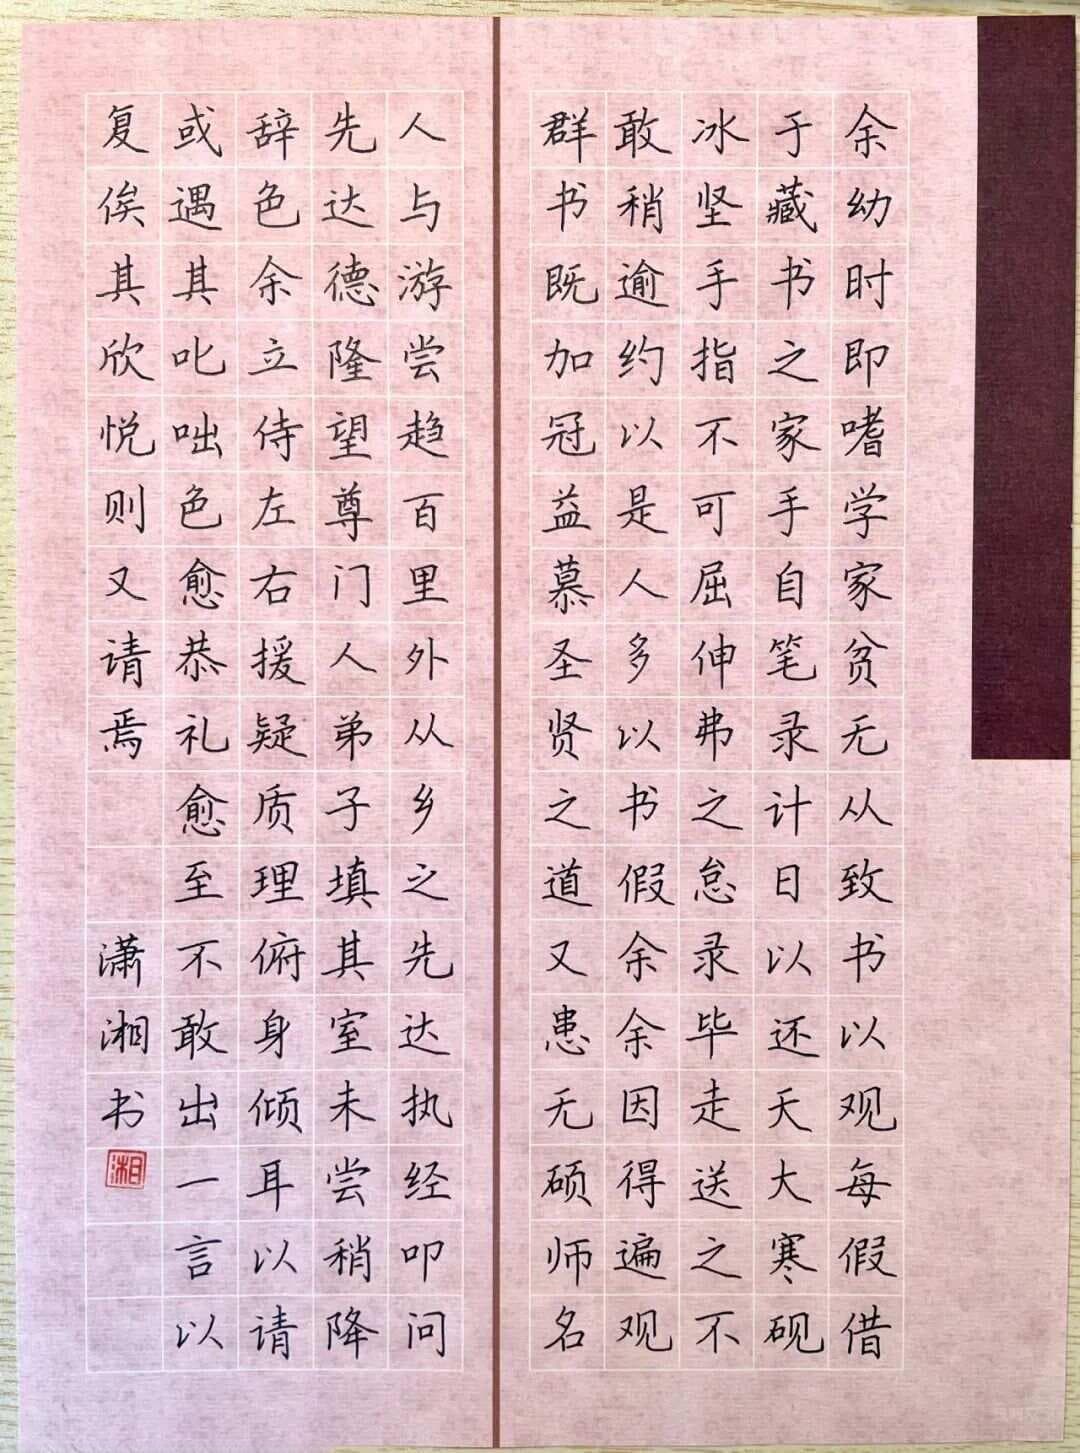 余幼时即嗜学家贫无从致书以观每假借
于藏书之家手自笔录计日以还天大寒砚
冰坚手指不可屈伸弗之怠录毕走送之不
敢稍逾约以是人多以书假余余因得遍观
群书既加冠益慕圣贤之道又患无硕师名
人与游尝趋百里外从乡之先达执经叩问
先达德隆望尊门人弟子填其室未尝稍降
辞色余立侍左右援疑质理俯身倾耳以请
或遇其叱咄色愈恭礼愈至不敢出一言以
复俟其欣悦则又请焉
潇湘书
湘